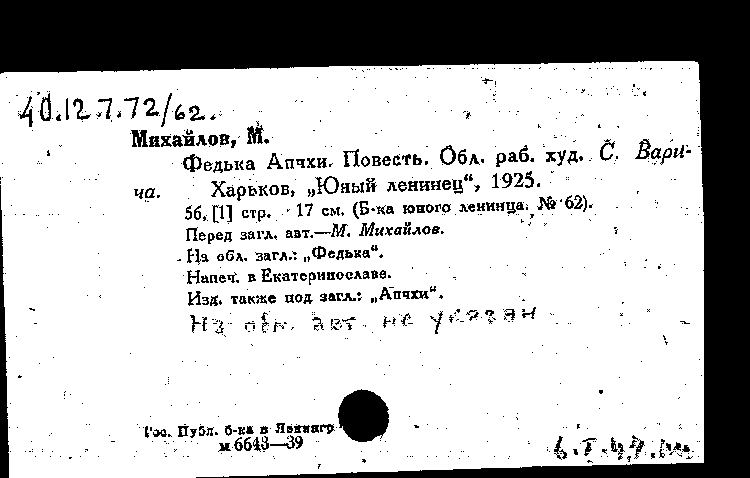 40.12.7.72/62.
Михайлов, М.
Федька Апчхи. Повесть. Обл. раб. худ. С. Вари-
ча. Харьков, „Юный ленинец“, 1925.
56, [1] стр. 17 см. (Б-ка юного ленинца. № 62).
Перед загл. авт.—М. Михайлов.
На обл. загл.: „Федька“.
Напеч. в Екатеринославе.
Изд. также под загл.: „Апчхи“.
На обл. авт. не указан
Гос. Публ. б-ка в Ленингр
м 6643—39